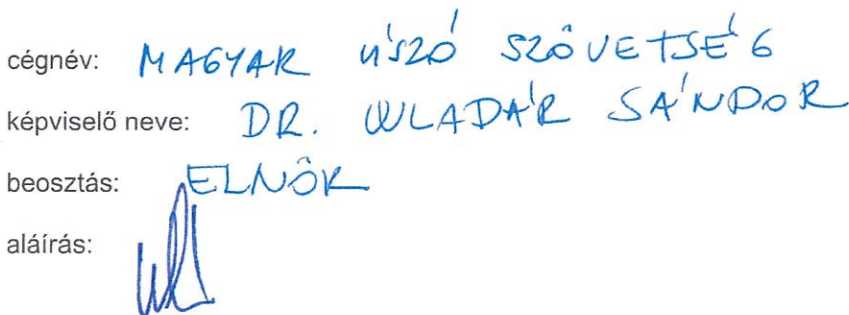 cégnév: MAGYAR ÚSZÓ SZÖVETSÉG
képviselő neve: DR. WLADÁR SÁNDOR
beosztás: ELNÖK
aláírás: